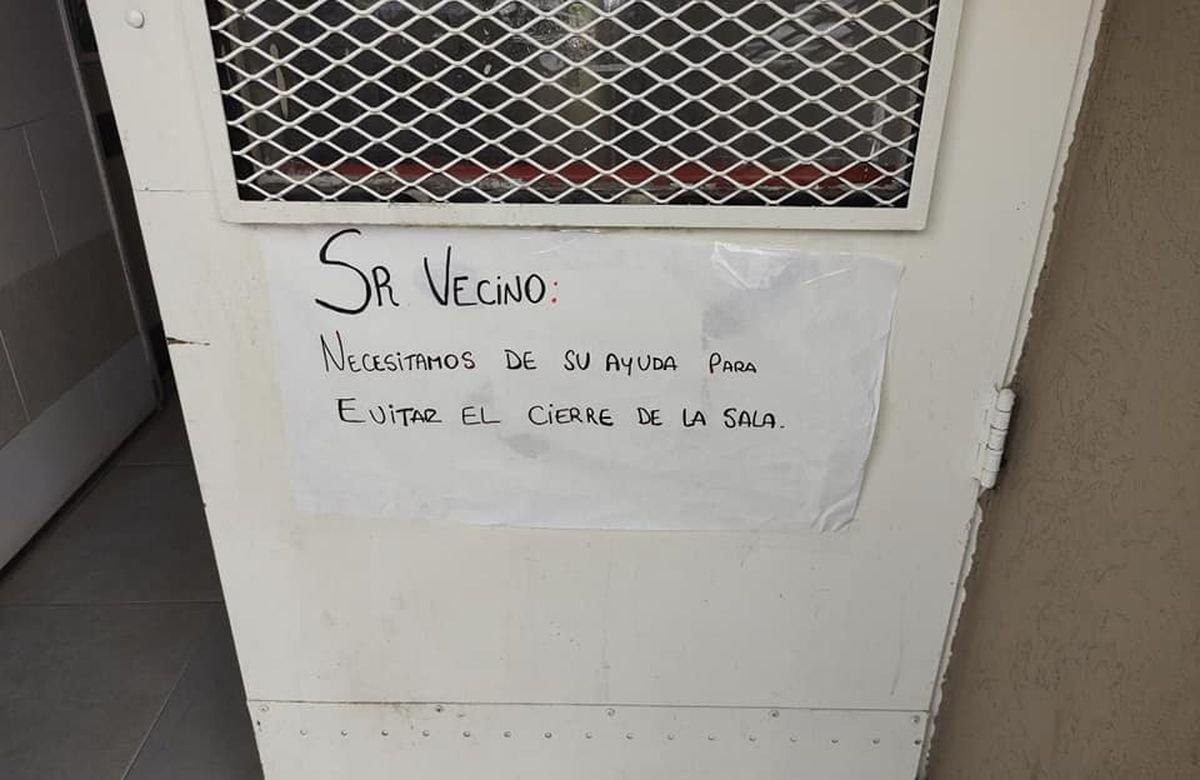 SR VECINO:
NECESITAMOS DE SU AYUDA PARA
EVITAR EL CIERRE DE LA SALA.